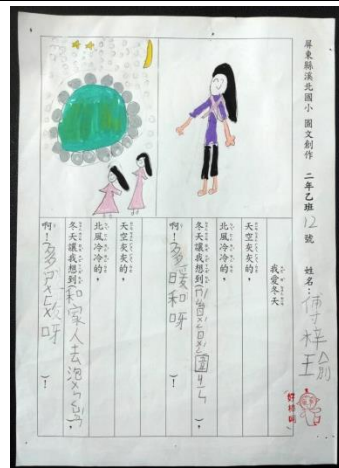 屏東縣溪北國小 圖文創作 二年乙班 12 號 姓名：傅梓瑜
我愛冬天
天空灰灰的，
北風冷冷的，
冬天讓我想到（），
啊！（多暖和呀）！
天空灰灰的，
北風冷冷的，
冬天讓我想到（和家人去泡），
啊！（多呀）！
好棒喔